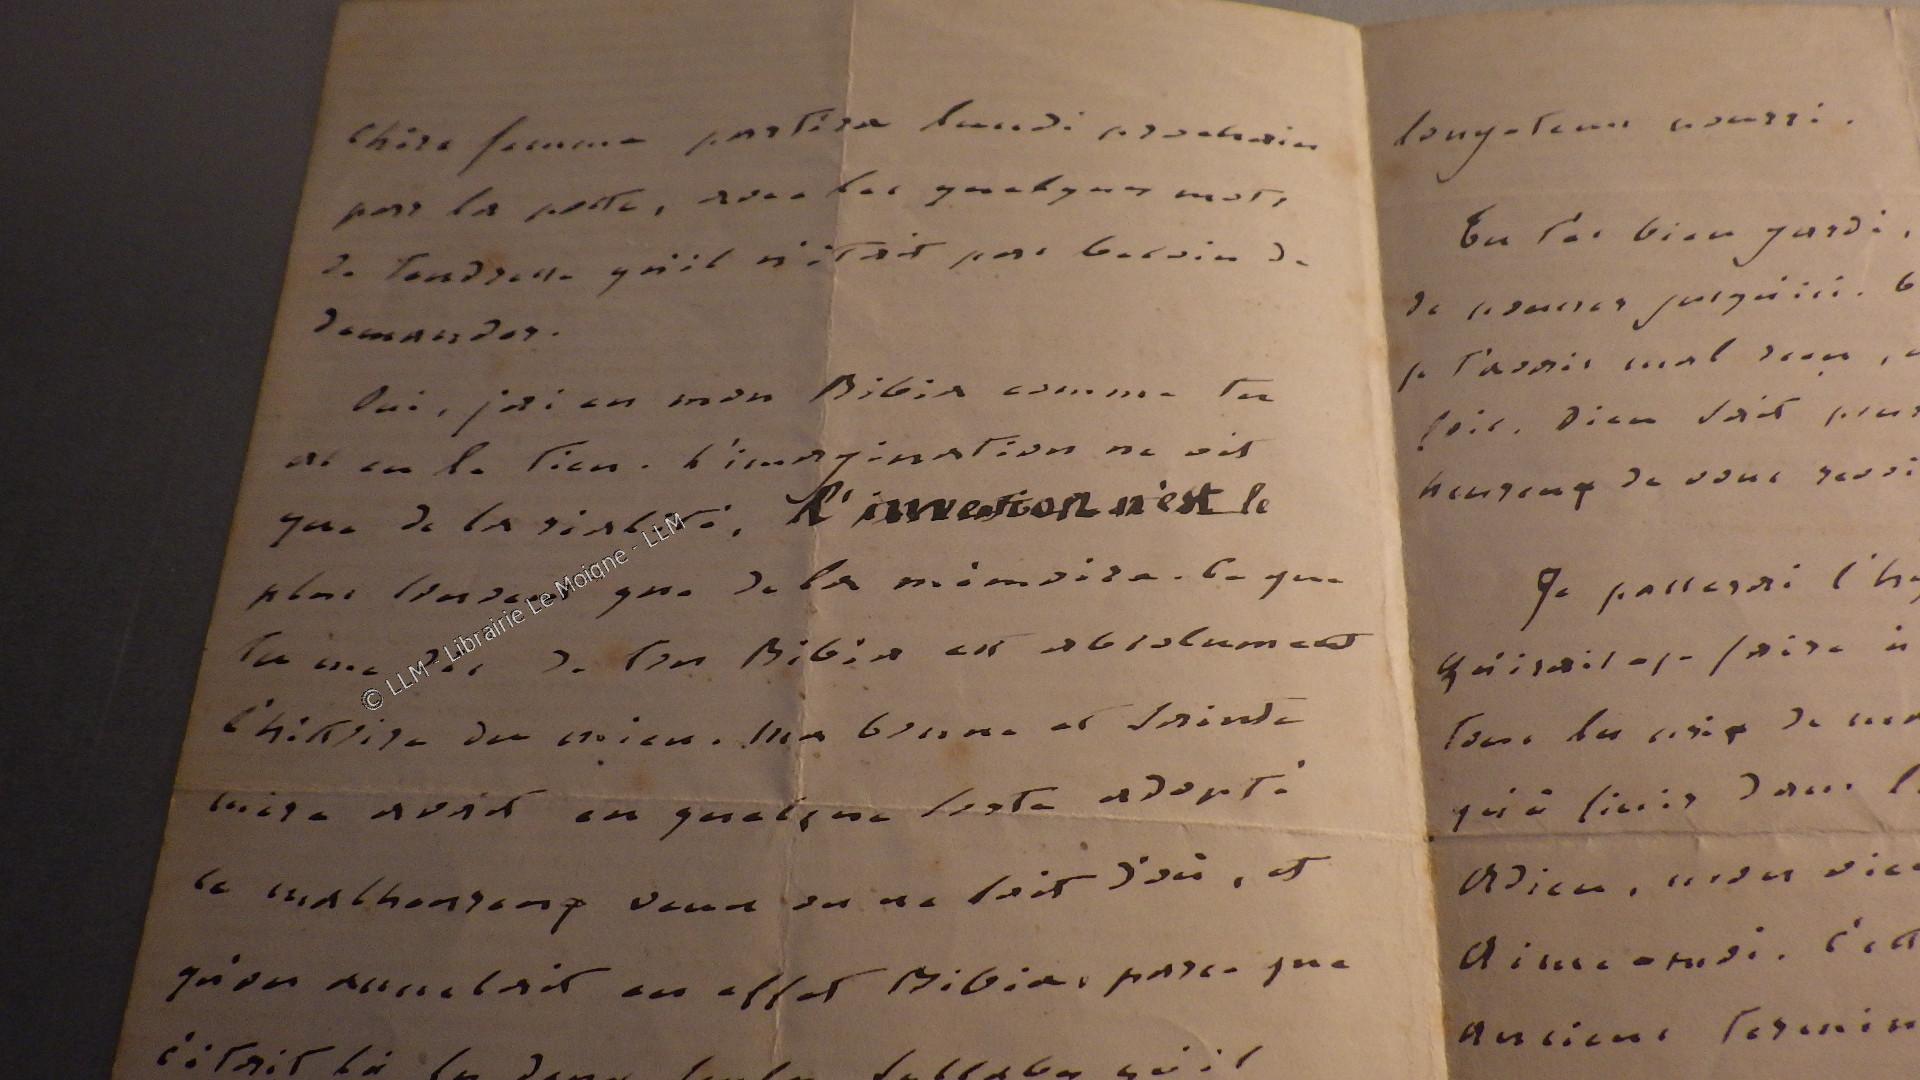 chère femme partira lundi prochain
par la poste, avec les quelques mots
de tendresse qu'il n'était pas besoin de
demander.
Oui, j'ai eu mon Bibia comme tu
as eu le tien. L'imagination ne vit
que de la réalité, l'invention n'est le
plus souvent que de la mémoire. Ce que
tu me dis de ton Bibia est absolument
l'histoire du mien. Ma bonne et sainte
mère avait en quelque sorte adopté
ce malheureux venu on ne sait d'où, et
qu'on appelait en effet Bibia, parce que
c'était là les deux seules syllabes qu'il
longtemps nourri.
Tu t'es bien gardé,
de pousser jusqu'ici.
je t'avais mal reçu,
fois. Dieu sait pour
heureux de vous revoi
Je passerai l'hy
Qu'irais-je faire à
tous les prix de
qu'à finir dans l
Adieu, mon vieu
Aime-moi. C'est
anciens
© LLM - Librairie Le Moigne - LLM